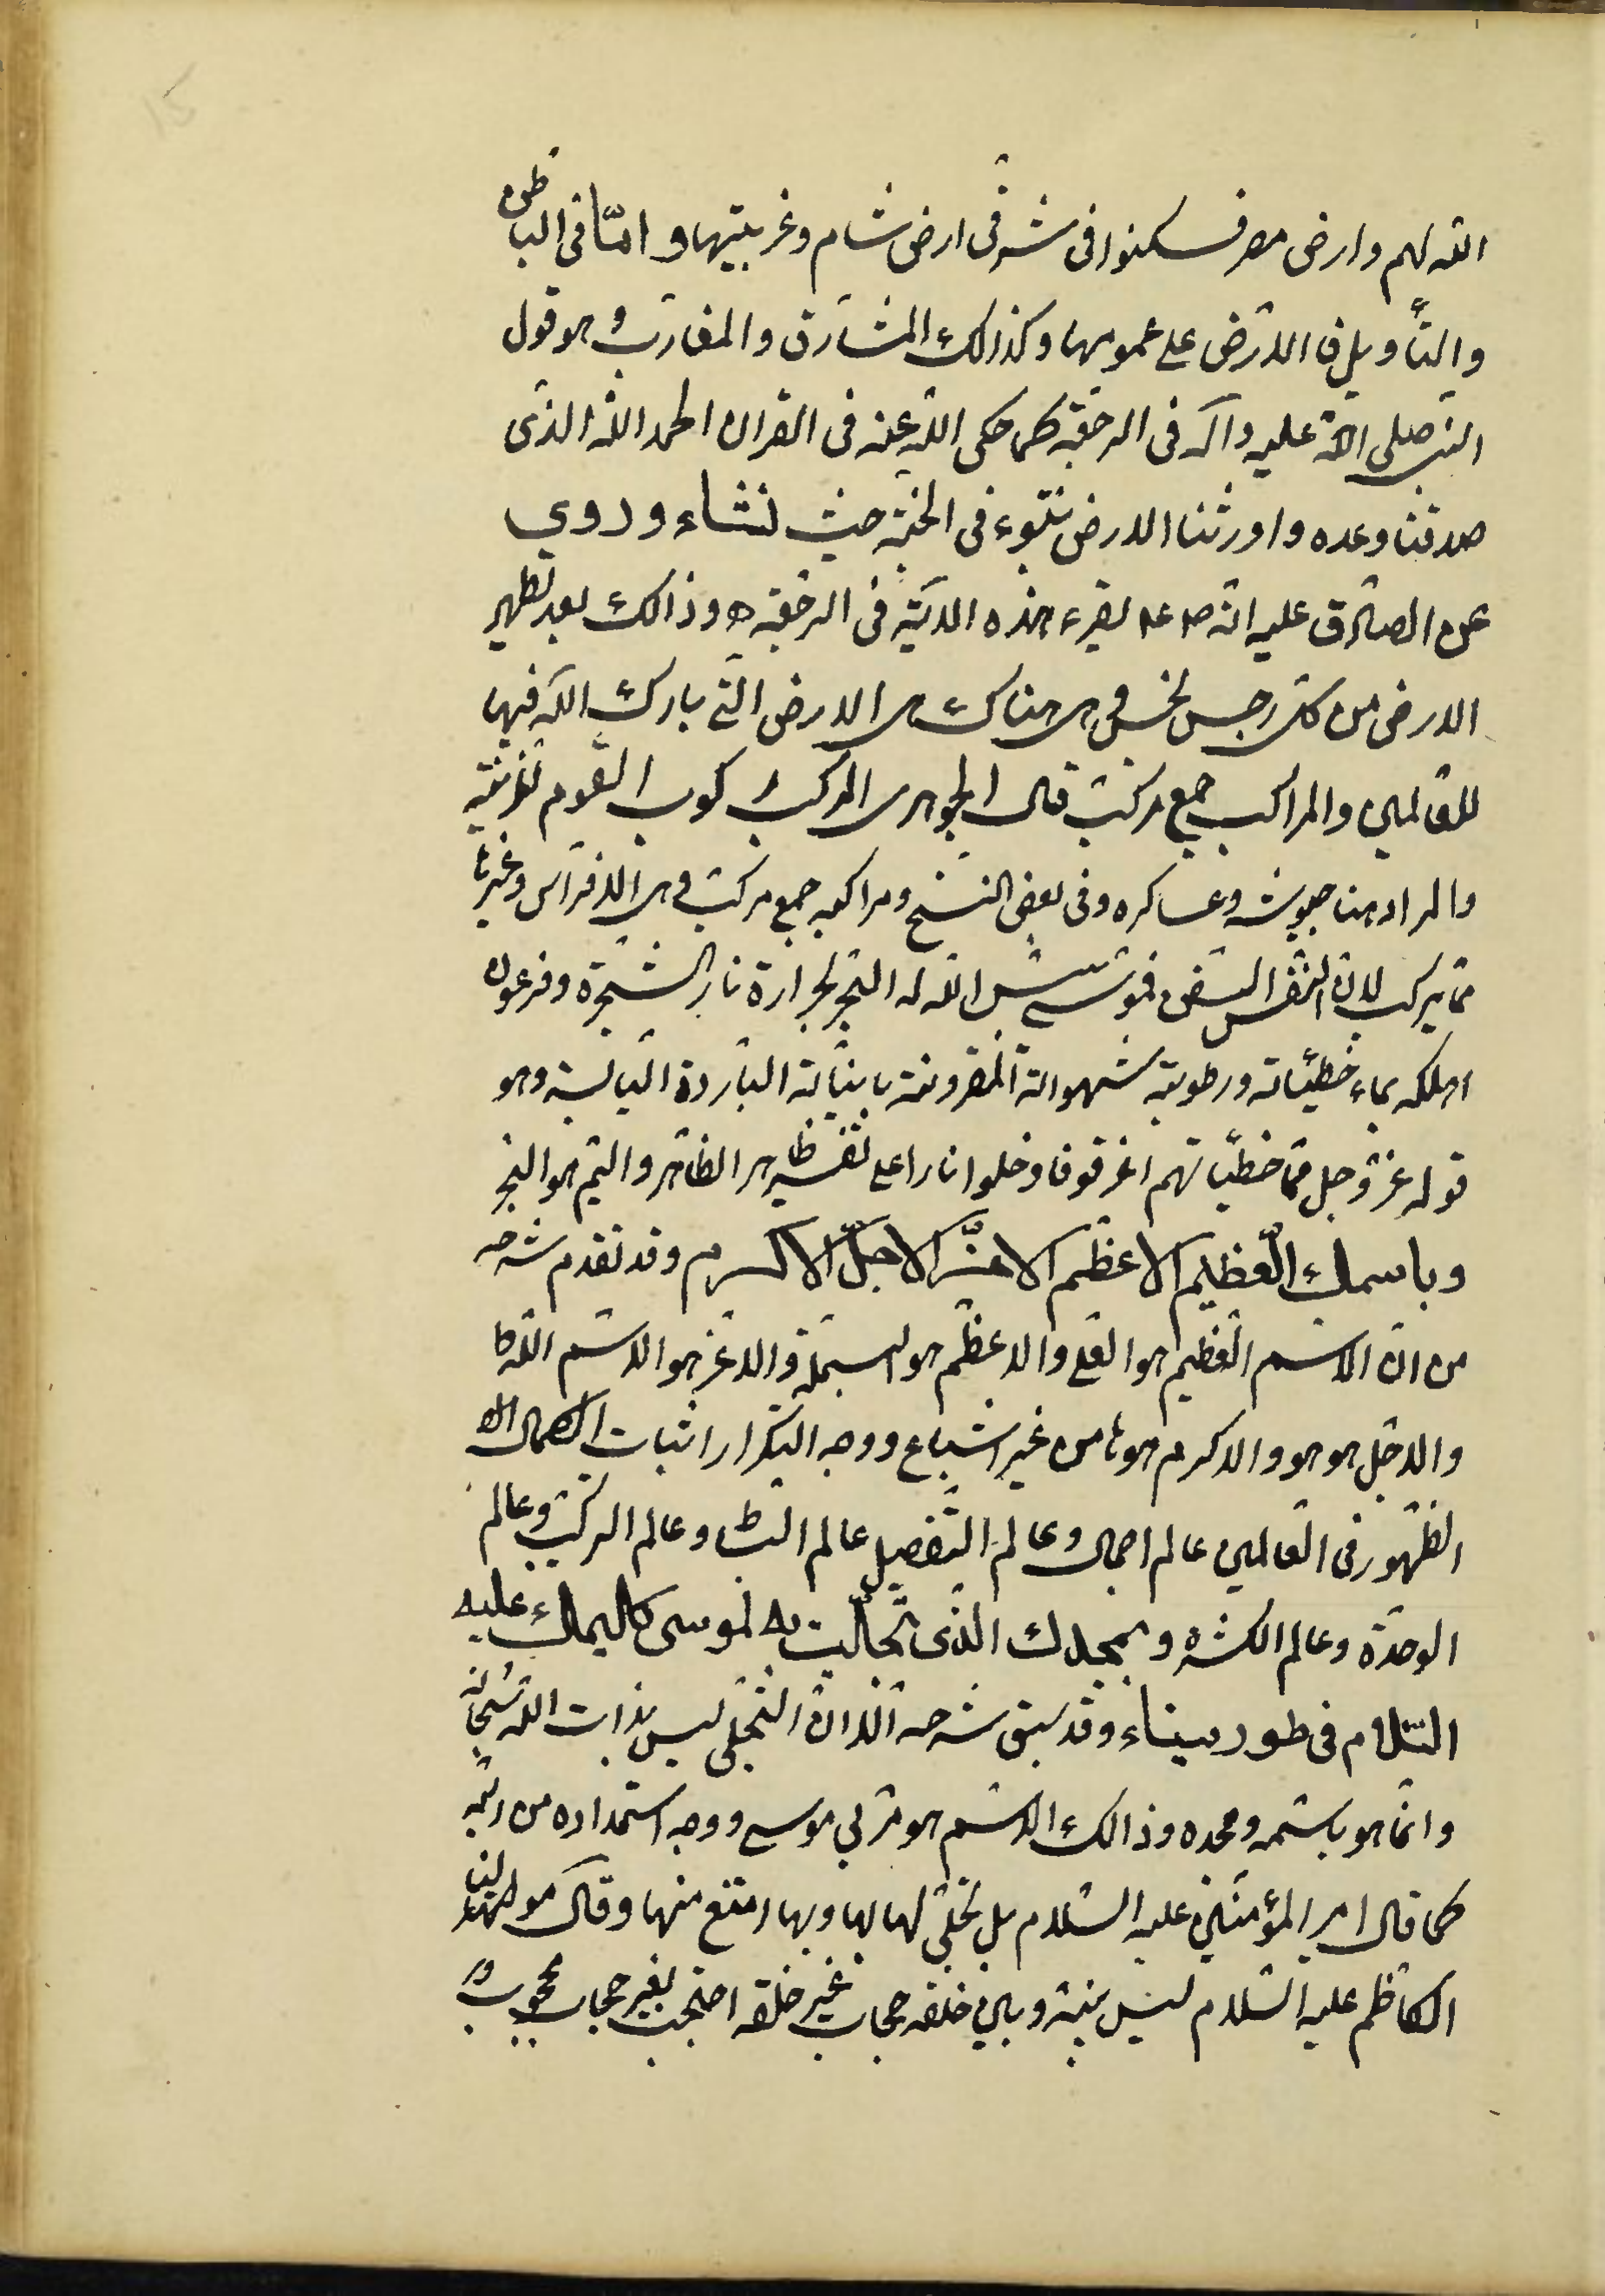 الله لهم وارض مصر فسكنوا فى شرقى ارض شام وغربيتها و امّا فى الباطن
والتأويل فالارض على عمومها وكذلك المشارق والمغارب وهو قول
النبى صلى الله عليه وآله فى الرجعة كما حكى الله عنه فى القران الحمد الله الذى
صدقنا وعده واورثنا الارض نتبوء فى الجنة حيث نشاء وروي
عن الصادق عليه انه ص ع يقرء هذه الاية فى الرجعة وذالك بعد تطهير
الارض من كل رجس نجس وهى هناك هى الارض التى بارك الله فيها
للعالمين والمراكب جمع مركب قال الجوهرى المركب ركوب القوم للزينة
والمراد هنا جيوشه وعساكره وفى بعض النسخ ومراكبه جمع مركب وهى الافراس وغيرها
مما يركب لان النفس فموسى يبس الله له البحر بحرارة نار الشجرة وفرعون
اهلكه بماء خطيئاته ورطوبة شهواته المقرونة الباردة اليابسة وهو
قوله عز وجل مما خطيئاتهم اغرقوا فادخلوا نارا على تفسير ظاهر الظاهر واليم هو البحر
وباسمك العظيم الاعظم الاعز الاجلّ الاكرم وقد تقدم شرحه
من ان الاسم العظيم هو العلى والاعظم هو البسملة والاعز هو الاسم الله
والاجل هو هو والاكرم هو ها من غير اشباع ووجه التكرار اثبات الكمال
الظهور فى العالمين عالم اجمال وعالم التفصيل عالم البساط وعالم التركيب وعالم
الوحدة وعالم الكثرة وبمجدك الذى تجليت به لموسى كليمك عليه
السلام فى طور سيناء وقد سبق شرحه الا ان التجلى ليس بذات الله سبحانه
وانما هو باسمه ومجده وذالك الاسم هو مربى موسى ووجه استمداده من ربه
كما قال امير المؤمنين عليه السلام بل تجلى لها بها وبها امتنع منها وقال مولانا
الكاظم عليه السلام ليس بينه وبين خلقه حجاب غير خلقه احتجب بغير حجاب محجوب و